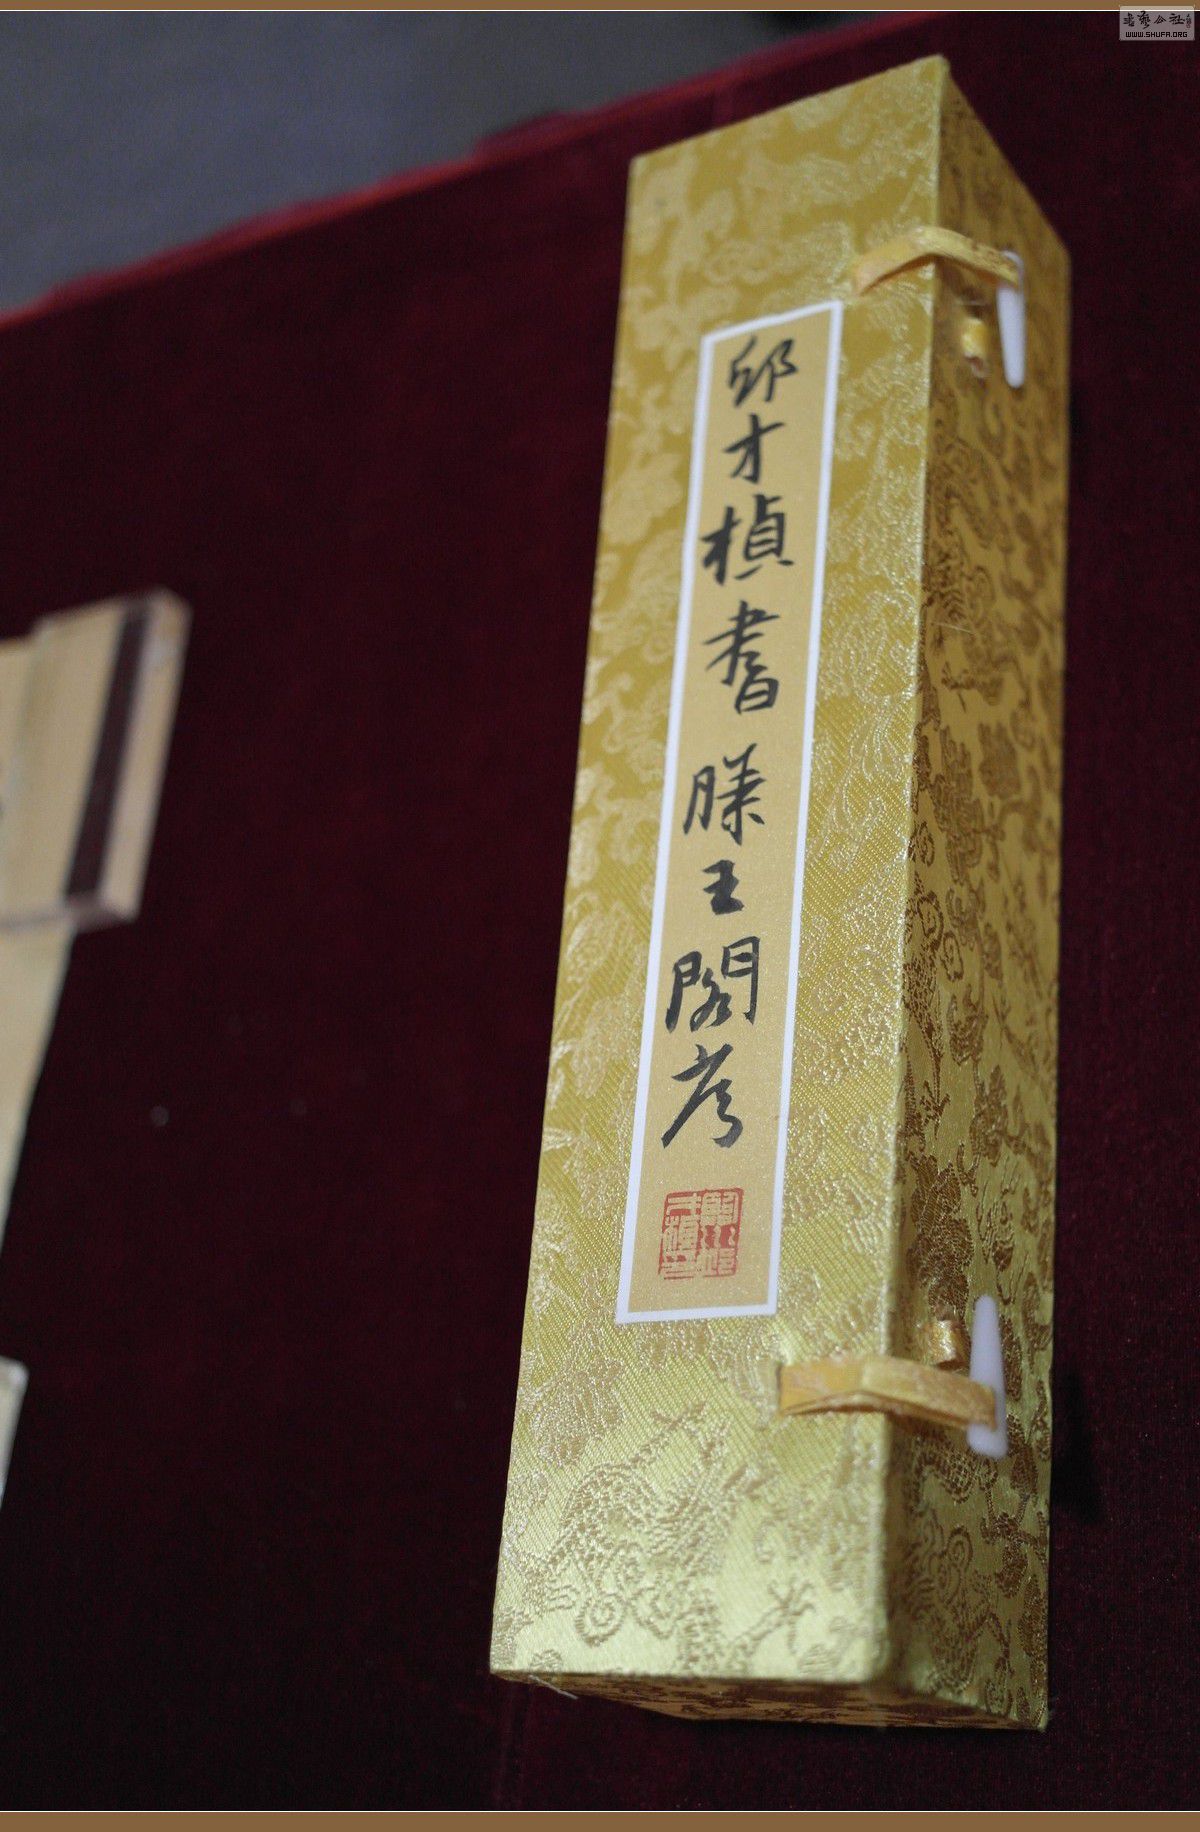 邱才楨書滕王閣考
书艺公社
WWW.SHUFA.ORG